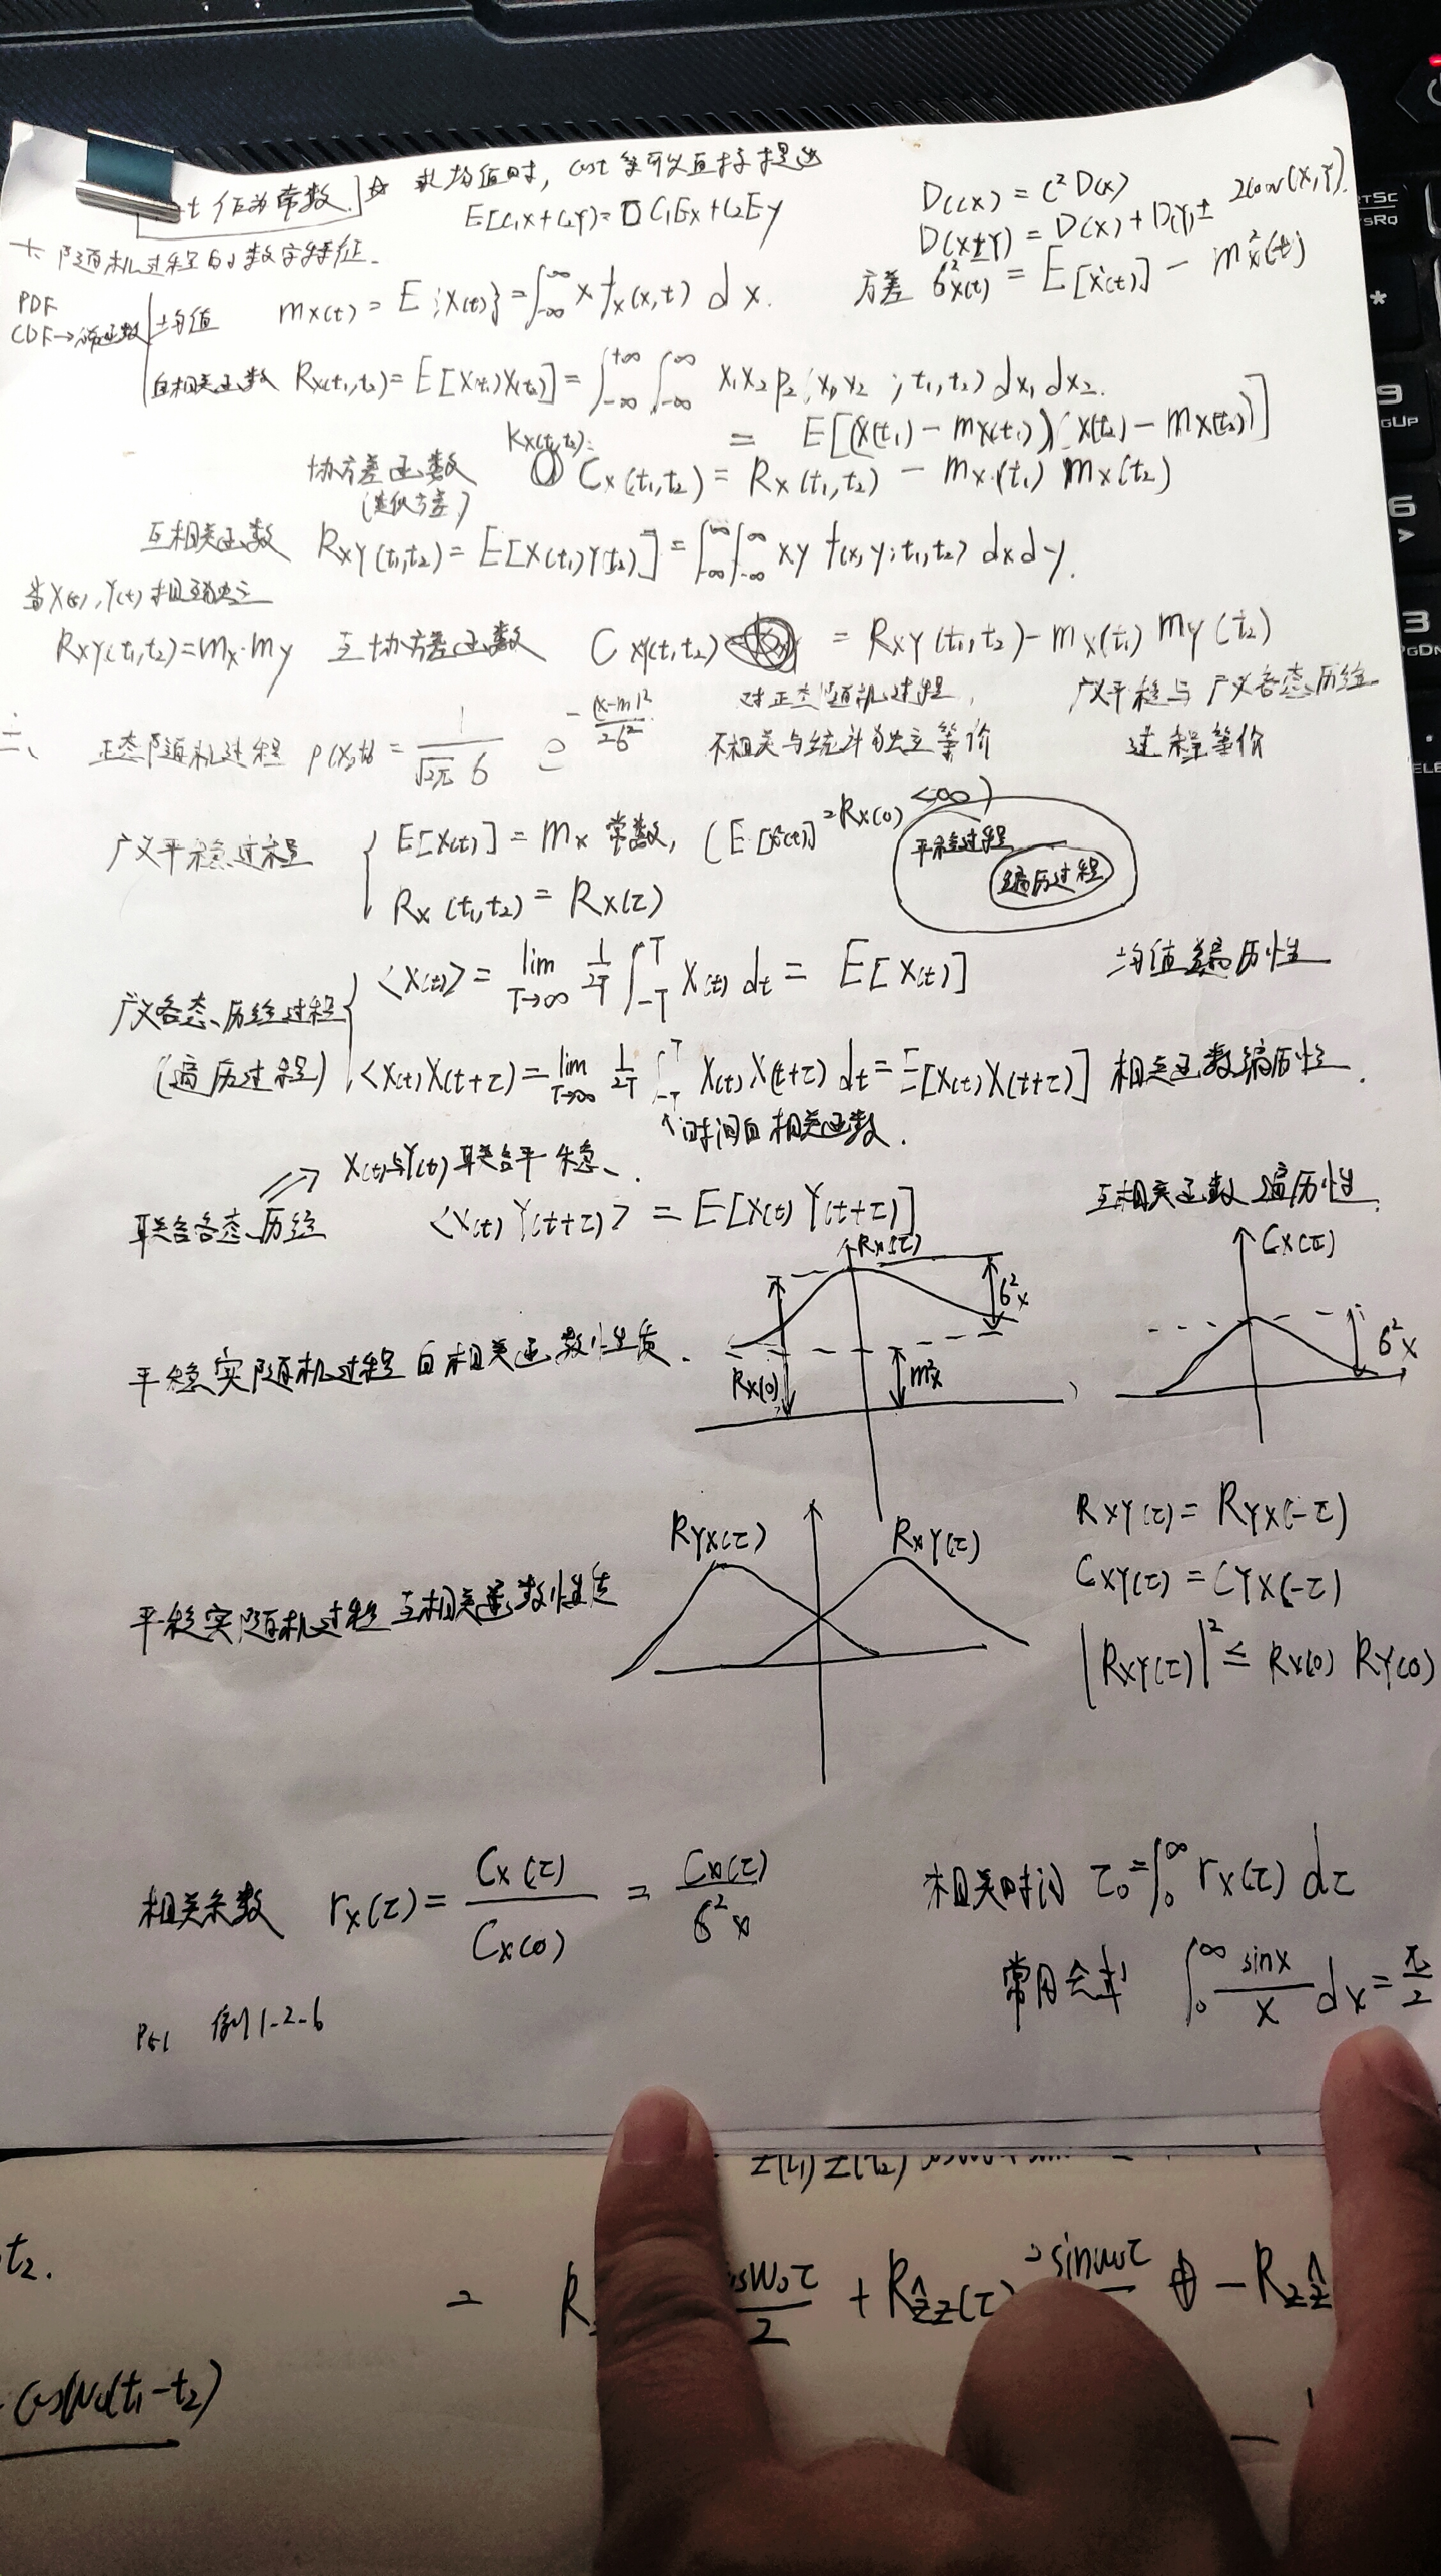 t 作为常数.] ☆ 求均值时, cost 等可以直接提出
E[C₁X+C₂Y)= C₁EX+C₂EY
D(CX) = C²D(X)
D(X±Y) = D(X) + D(Y) ± 2Cov(X,Y).
一. 随机过程的数字特征.
PDF
CDF→
均值 mx(t) = E{X(t)} = ∫_{-∞}^{∞} x fx(x,t) dx.
方差 6²x(t) = E[X²(t)] - m²x(t)
自相关函数 Rx(t₁,t₂) = E[X(t₁)X(t₂)] = ∫_{-∞}^{+∞}∫_{-∞}^{∞} x₁x₂p₂(x₁,x₂;t₁,t₂)dx₁dx₂.
Kx(t₁,t₂): = E[(X(t₁) - mx(t₁))(X(t₂) - mx(t₂))]
协方差函数 Cx(t₁,t₂) = Rx(t₁,t₂) - mx(t₁) mx(t₂)
(类似方差)
互相关函数 Rxy(t₁,t₂) = E[X(t₁)Y(t₂)] = ∫_{-∞}^{∞}∫_{-∞}^{∞} xy f(x,y;t₁,t₂) dxdy.
当X(t),Y(t)相互独立
Rxy(t₁,t₂)=mx·my 互协方差函数 Cxy(t₁,t₂) = Rxy(t₁,t₂) - mx(t₁) my(t₂)
二、 正态随机过程 p(x,t) = 1/(√2π 6) e^{-(x-m)²/26²}
对正态随机过程,
不相关与统计独立等价
广义平稳与广义各态历经
过程等价
广义平稳过程 { E[X(t)] = mx 常数, (E[X²(t)] = Rx(0) <∞)
Rx(t₁,t₂) = Rx(τ)
平稳过程
遍历过程
广义各态历经过程 { <X(t)> = lim_{T→∞} 1/2T ∫_{-T}^{T} X(t) dt = E[X(t)] 均值遍历性
(遍历过程) <X(t)X(t+τ)> = lim_{T→∞} 1/2T ∫_{-T}^{T} X(t)X(t+τ) dt = E[X(t)X(t+τ)] 相关函数遍历性.
↑时间自相关函数.
⇒ X(t)与Y(t)联合平稳.
联合各态历经 <X(t)Y(t+τ)> = E[X(t)Y(t+τ)] 互相关函数遍历性.
平稳实随机过程自相关函数性质.
Rx(τ)
6²x
Rx(0)
m²x
Cx(τ)
6²x
平稳实随机过程互相关函数性质
Ryx(τ)
Rxy(τ)
Rxy(τ) = Ryx(-τ)
Cxy(τ) = Cyx(-τ)
|Rxy(τ)|² ≤ Rx(0) Ry(0)
相关系数 rx(τ) = Cx(τ)/Cx(0) = Cx(τ)/6²x
相关时间 τ₀ = ∫₀^∞ rx(τ) dτ
∫₀^∞ sinx/x dx = π/2
P51 例1-2-6
t₂.
= R osω₀τ/2 + Rẑz(τ) sinω₀τ - Rzẑ
cosω₀(t₁-t₂)